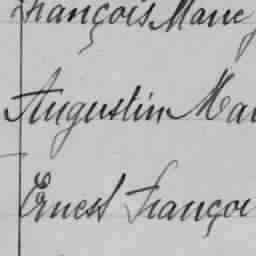 François Marie
Augustin Mar
Ernest Françoi